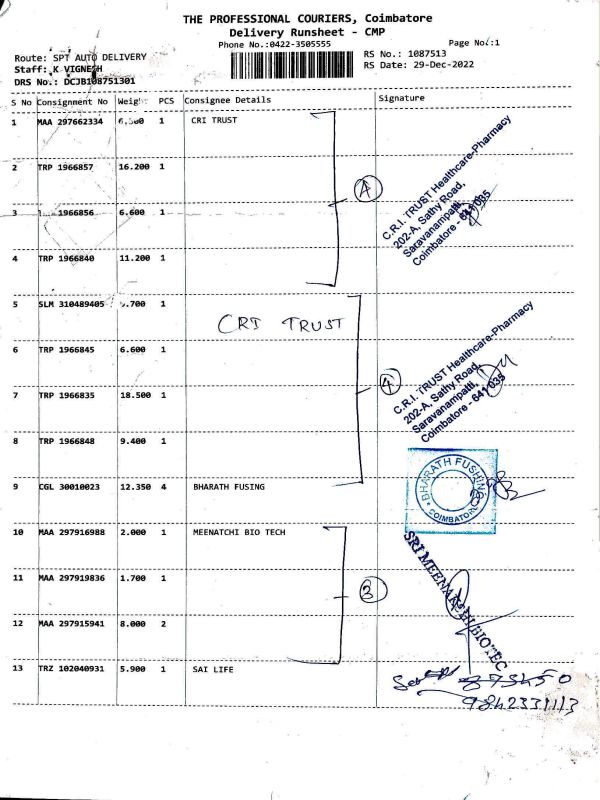 THE PROFESSIONAL COURIERS, Coimbatore
Delivery Runsheet - CMP
Phone No.:0422-3505555
Page No.:1
Route: SPT AUTO DELIVERY
RS No.: 1087513
Staff: K VIGNESH
RS Date: 29-Dec-2022
DRS No.: DCJB108751301
S No Consignment No Weight PCS Consignee Details Signature
1 MAA 297662334 6.500 1 CRI TRUST
2 TRP 1966857 16.200 1
3 1966856 6.600 1
4 TRP 1966840 11.200 1
A
C.R.I. TRUST Healthcare-Pharmacy
202-A, Sathy Road,
Saravanampatti,
Coimbatore - 641 035
5 SLM 310489405 .700 1
CRI TRUST
6 TRP 1966845 6.600 1
7 TRP 1966835 18.500 1
8 TRP 1966848 9.400 1
4
C.R.I. TRUST Healthcare-Pharmacy
202-A, Sathy Road,
Saravanampatti,
Coimbatore - 641 035
9 CGL 30010023 12.350 4 BHARATH FUSING
BHARATH FUSHING
COIMBATORE
10 MAA 297916988 2.000 1 MEENATCHI BIO TECH
11 MAA 297919836 1.700 1
12 MAA 297915941 8.000 2
3
SRI MEENAKSHI BIOTEC
13 TRZ 102040931 5.900 1 SAI LIFE
9842331113